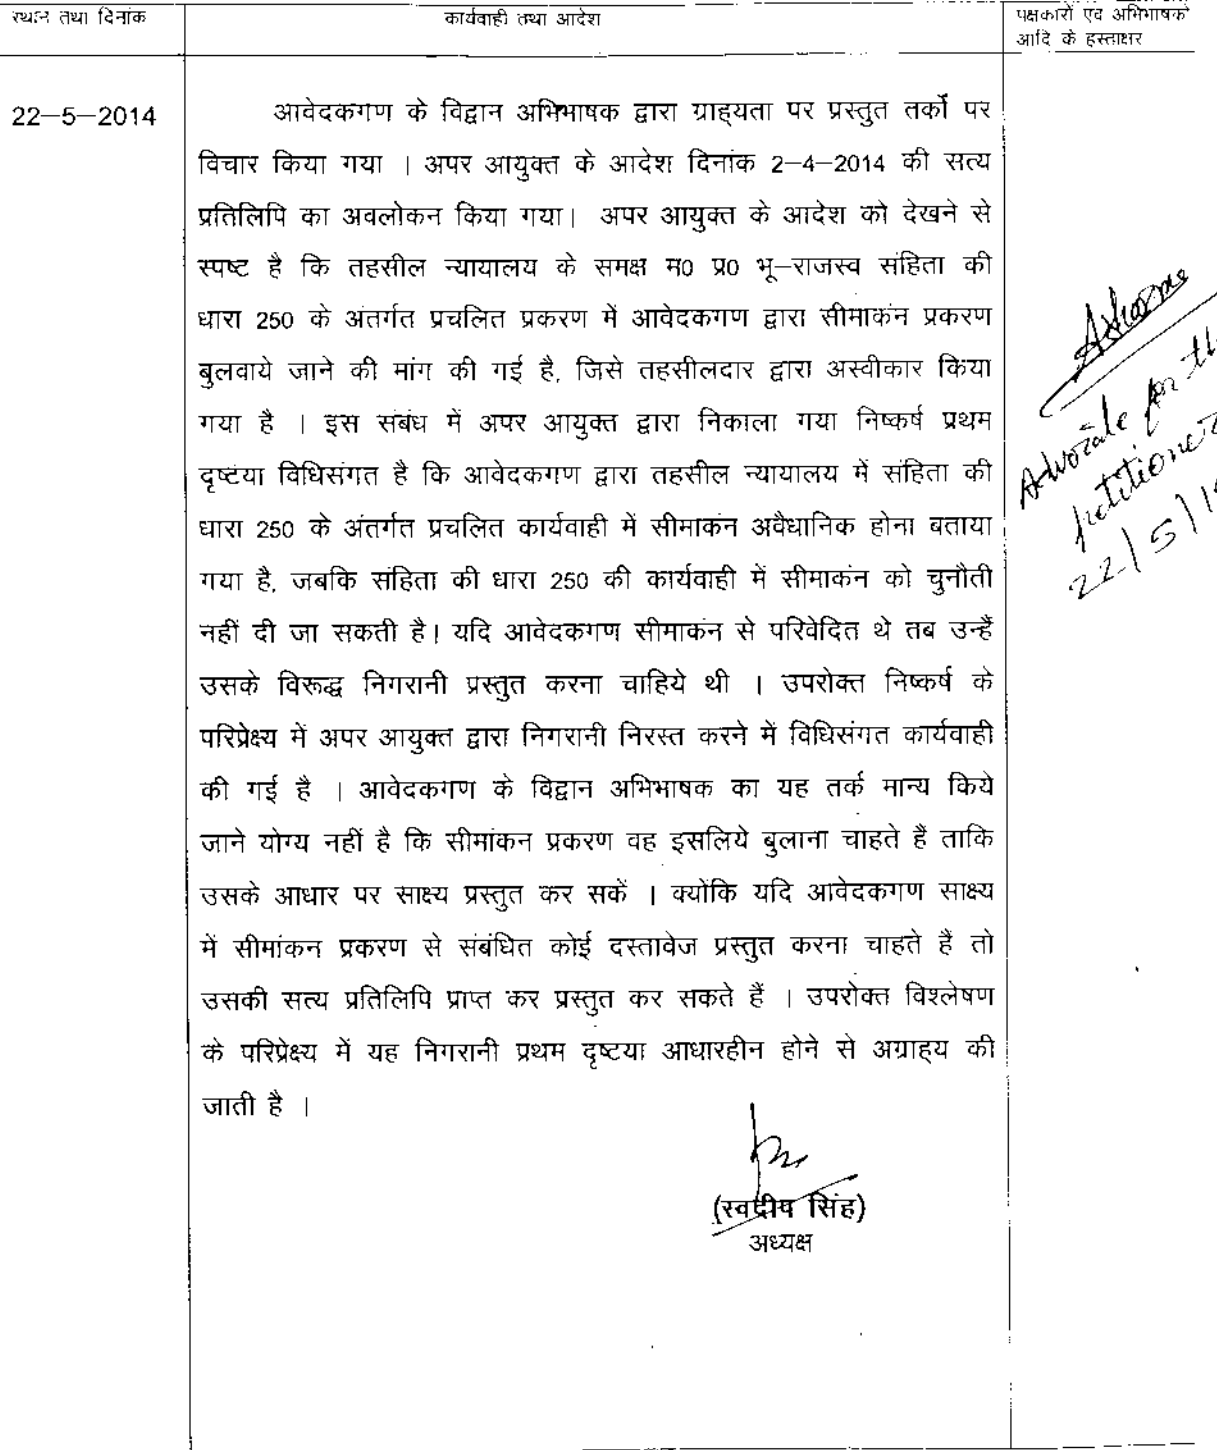 स्थान तथा दिनांक
कार्यवाही तथा आदेश
पक्षकारों एवं अभिभाषकों
आदि के हस्ताक्षर
22–5–2014
आवेदकगण के विद्वान अभिभाषक द्वारा ग्राह्यता पर प्रस्तुत तर्कों पर
विचार किया गया । अपर आयुक्त के आदेश दिनांक 2–4–2014 की सत्य
प्रतिलिपि का अवलोकन किया गया। अपर आयुक्त के आदेश को देखने से
स्पष्ट है कि तहसील न्यायालय के समक्ष म0 प्र0 भू–राजस्व संहिता की
धारा 250 के अंतर्गत प्रचलित प्रकरण में आवेदकगण द्वारा सीमाकंन प्रकरण
बुलवाये जाने की मांग की गई है, जिसे तहसीलदार द्वारा अस्वीकार किया
गया है । इस संबंध में अपर आयुक्त द्वारा निकाला गया निष्कर्ष प्रथम
दृष्टया विधिसंगत है कि आवेदकगण द्वारा तहसील न्यायालय में संहिता की
धारा 250 के अंतर्गत प्रचलित कार्यवाही में सीमाकंन अवैधानिक होना बताया
गया है, जबकि संहिता की धारा 250 की कार्यवाही में सीमाकंन को चुनौती
नहीं दी जा सकती है। यदि आवेदकगण सीमाकंन से परिवेदित थे तब उन्हें
उसके विरूद्ध निगरानी प्रस्तुत करना चाहिये थी । उपरोक्त निष्कर्ष के
परिप्रेक्ष्य में अपर आयुक्त द्वारा निगरानी निरस्त करने में विधिसंगत कार्यवाही
की गई है । आवेदकगण के विद्वान अभिभाषक का यह तर्क मान्य किये
जाने योग्य नहीं है कि सीमांकन प्रकरण वह इसलिये बुलाना चाहते हैं ताकि
उसके आधार पर साक्ष्य प्रस्तुत कर सकें । क्योंकि यदि आवेदकगण साक्ष्य
में सीमांकन प्रकरण से संबंधित कोई दस्तावेज प्रस्तुत करना चाहते हैं तो
उसकी सत्य प्रतिलिपि प्राप्त कर प्रस्तुत कर सकते हैं । उपरोक्त विश्लेषण
के परिप्रेक्ष्य में यह निगरानी प्रथम दृष्टया आधारहीन होने से अग्राह्य की
जाती है ।
(स्वदीप सिंह)
अध्यक्ष
Advocate for
petitioner
22/5/1